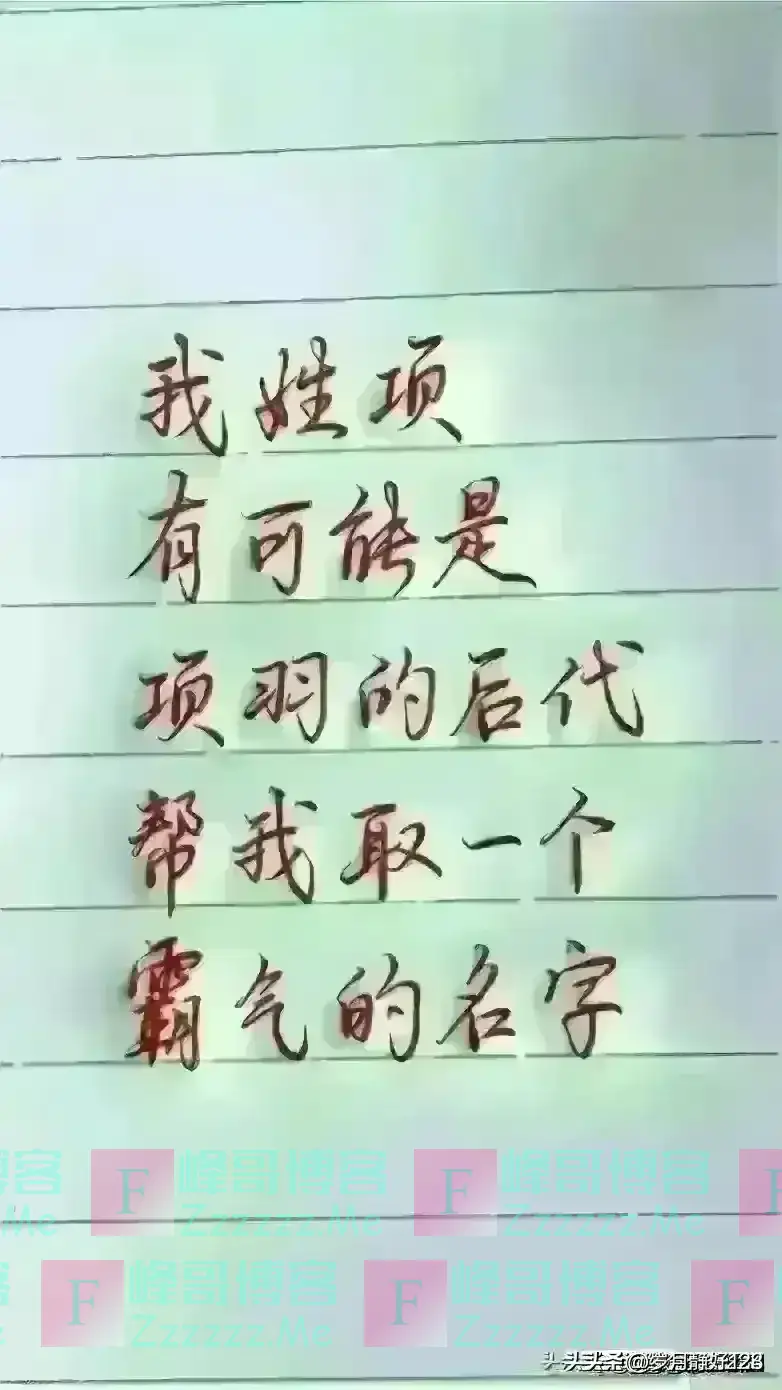 我姓项
有可能是
项羽的后代
帮我取一个
霸气的名字
博客 F 峰哥博客 F 峰哥博客 F
.Me Zzzzzz.Me Zzzzzz.Me
F 峰哥博客 F 峰哥博客 F
Zzzzzz.Me Zzzzzz.Me